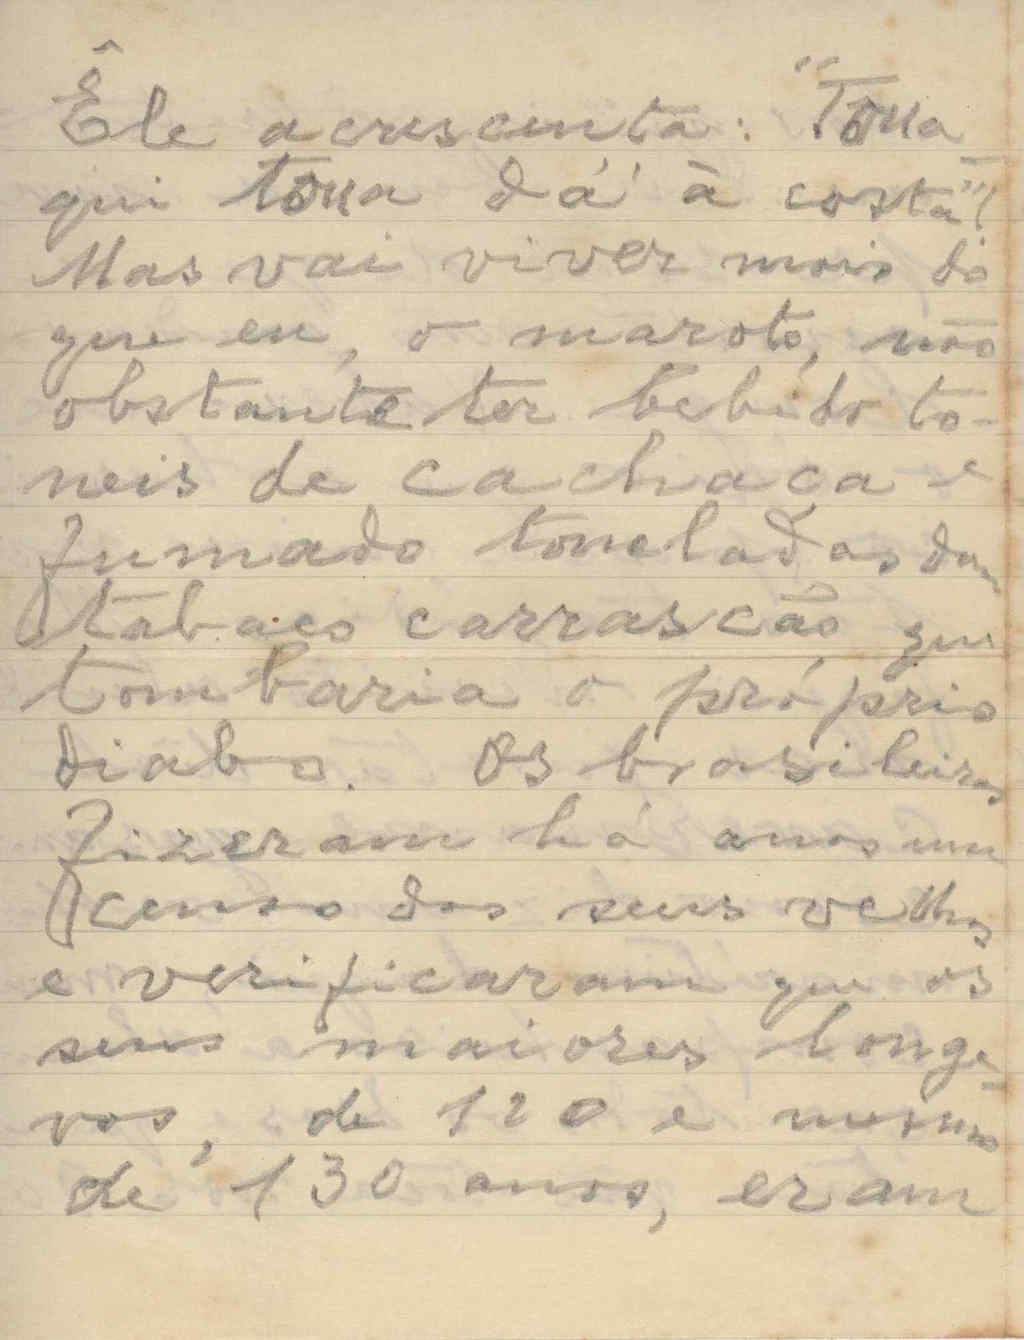 Êle acrescenta: "Toua
qui toua dá à costa"!
Mas vai viver mais do
que eu, o maroto, não
obstante ter bebido to-
neis de cachaça e
fumado toneladas dum
tabaco carrascão que
tombaria o próprio
diabo. Os brasileiros
fizeram há anos um
censo dos seus velhos
e verificaram que os
seus maiores longe-
vos, de 120 e mesmo
de 130 anos, eram